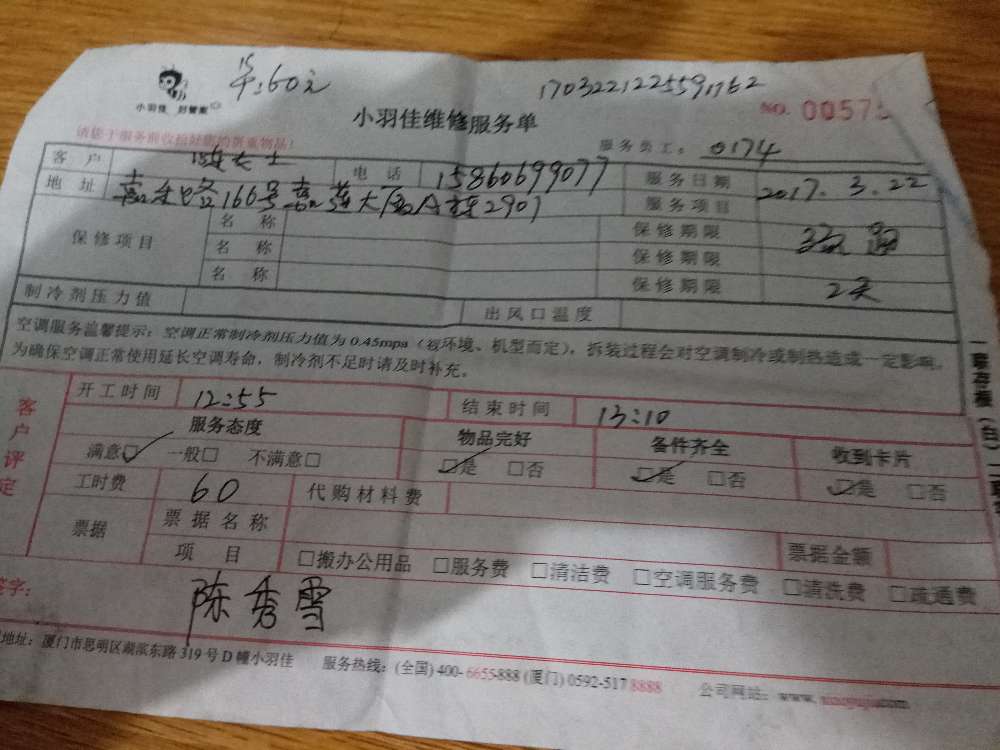 单:60元
1703221225591762
小羽佳 好管家
小羽佳维修服务单
NO. 00575
请徒于服务前收拾好您的贵重物品!
服务员工: 0174
客户 陈女士 电话 15860699077 服务日期 2017.3.22
地址 嘉禾路160号嘉莲大厦A栋2907 服务项目
保修项目 名称 保修期限
名称 保修期限 2天
名称 保修期限
制冷剂压力值 出风口温度
空调服务温馨提示:空调正常制冷剂压力值为0.45mpa(视环境、机型而定),拆装过程会对空调制冷或制热造成一定影响。
为确保空调正常使用延长空调寿命,制冷剂不足时请及时补充。
客户评定
开工时间 12:55 结束时间 13:10
服务态度 物品完好 备件齐全 收到卡片
满意☑ 一般□ 不满意□ ☑是 □否 ☑是 □否 ☑是 □否
工时费 60 代购材料费
票据 票据名称 票据金额
项目 □搬办公用品 □服务费 □清洁费 □空调服务费 □清洗费 □疏通费
签字: 陈秀雪
地址:厦门市思明区湖滨东路319号D幢小羽佳 服务热线:(全国)400-6655-888 (厦门)0592-5178888 公司网站:www.xiaoyujia.com